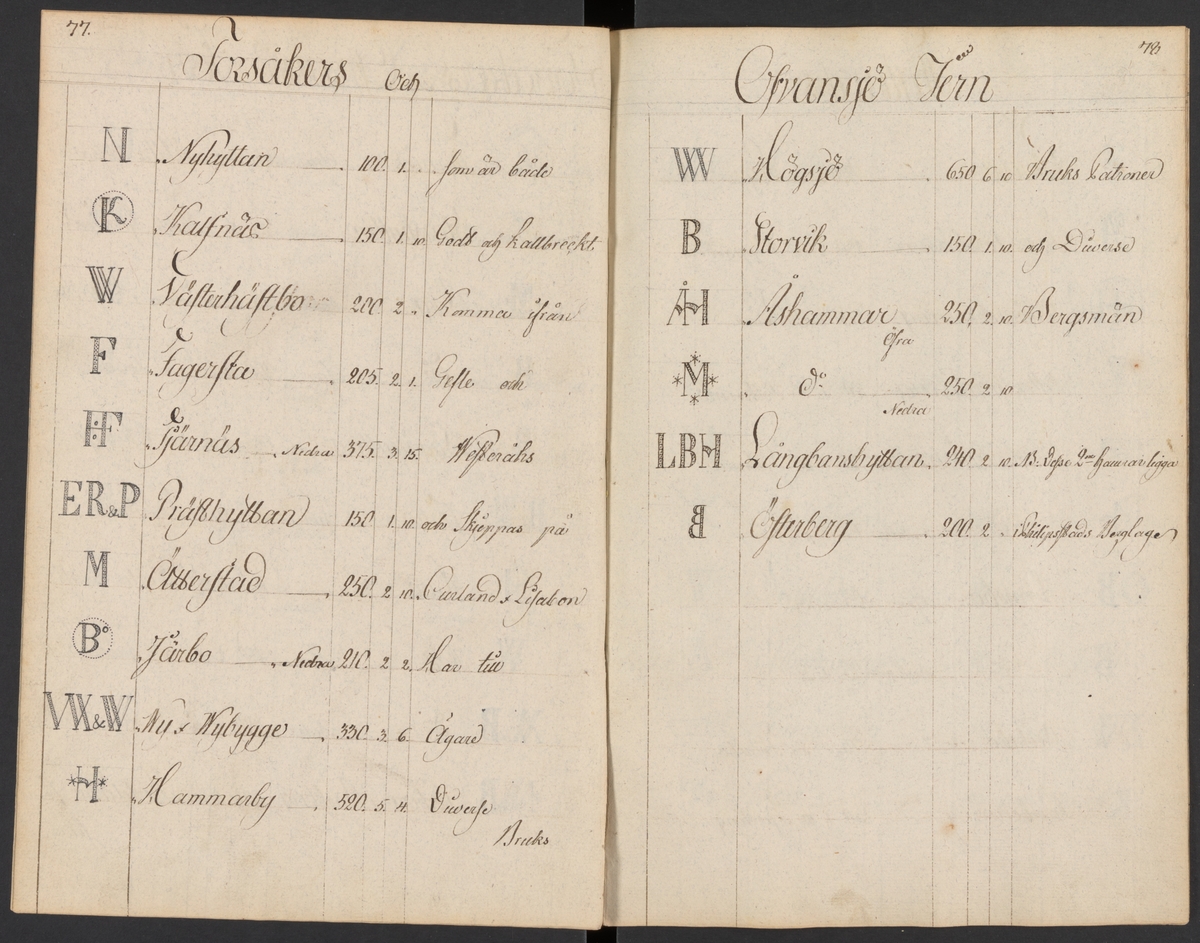 77.
Torsåkers Och
N Nyhyttan 100. 1. . som är både
K Kalfnäs 150. 1. 10. Godt och kallbreckt.
W Västerhästbo 200. 2. " Komma ifrån
F Fagersta 205. 2. 1. Gefle och
HF Fjärnäs Nedra 375. 3. 15. Westeråhs
ER&P Prästhyttan 150 1. 10. och Skieppas på
M Åtterstad 250. 2 10. Curland & Lisabon
B° Järbo Nedra 210. 2 2. Har till
VVX&W Wij & Nybygge 330. 3. 6. Ägare
H Hammarby 520. 5. 4. Diverse
Bruks
78
Ofvansjö Jern
W Högsjö 650 6 10 Bruks Patroner
B Storvik 150. 1. 10. och Diverse
ÅH Åshammar 250. 2. 10. Bergsmän
Öfra
M d° 250. 2 10
Nedra
LBH Långbanshyttan 240. 2 10. NB. Desse 2ne hamrar ligga
B Österberg 200. 2 . i Philipsstads Berglage